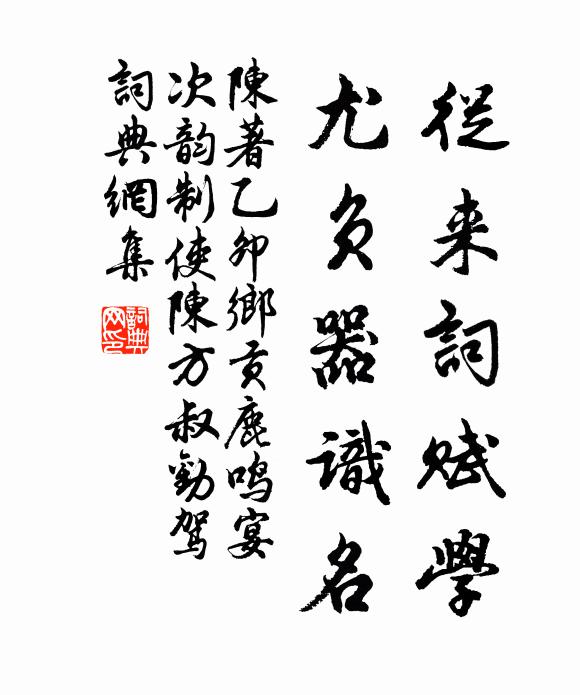 從来詞賦學
尤負器識名
陳著乙卯鄉貢鹿鳴宴
次韵制使陳方叔勸駕
詞典網集
詞典网印